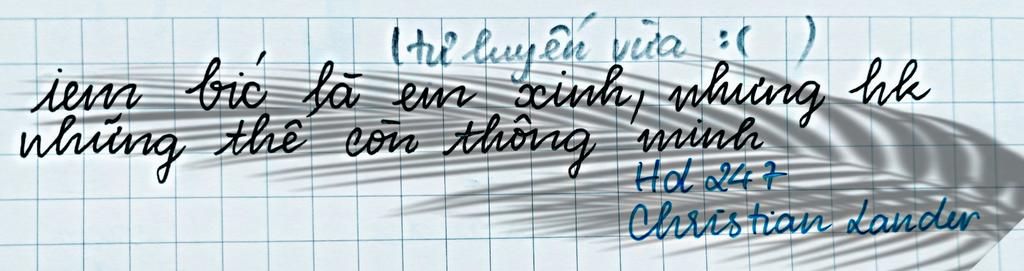 (tự luyến vừa :( )
iem bić là em xinh, nhưng hk
những thế còn thông minh
Hd 247
Christian Lander